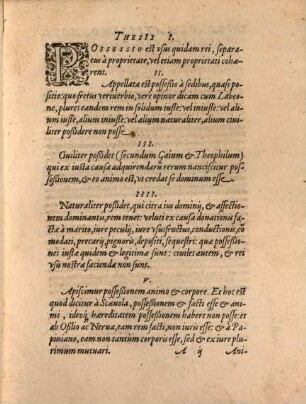 THESIS I.
POSSESSIO est vsus quidam rei, separa-
tus à proprietate, vel etiam proprietati cohæ-
rens.
II.
Appellata est possessio à sedibus, quasi po-
sitio: quo fretus veriuerbio, vere potior dicam cum Labeo-
ne, plures eandem rem in solidum iuste: vel iniuste: vel aliũ
iuste, alium iniuste: vel alium naturaliter, alium ciuil
iter possidere non posse.
III.
Ciuiliter possidet (secundum Gaium & Theophilum)
qui ex iusta causa adquirendarum rerum nanciscitur pos-
sessionem, & eo animo est, vt credat se dominum esse.
IIII.
Naturaliter possidet, qui citra ius dominij, & affectio-
nem dominantis, rem tenet: veluti ex causa donationis fact
æ à marito, iure peculij, iure vsusfructus, conductionis, cõ
modati, precarij, pignoris, depositi, sequestri: quæ possessio-
nes iustæ quidem & legitimæ sunt: ciuiles autem, & rei
vsu nostra faciendæ non sunt.
V.
Apiscimur possessionem animo & corpore. Et hoc est
quod dicitur à Scæuola, possessionem & facti esse & ani-
mi, ideoq; hæreditatem possessionem habere non posse: et
ab Ofilio ac Nerua, eam rem facti, non iuris esse: & à Pa-
piniano, eam non tantum corporis esse, sed & ex iure plu-
rimum mutuari.
A ij Ani-